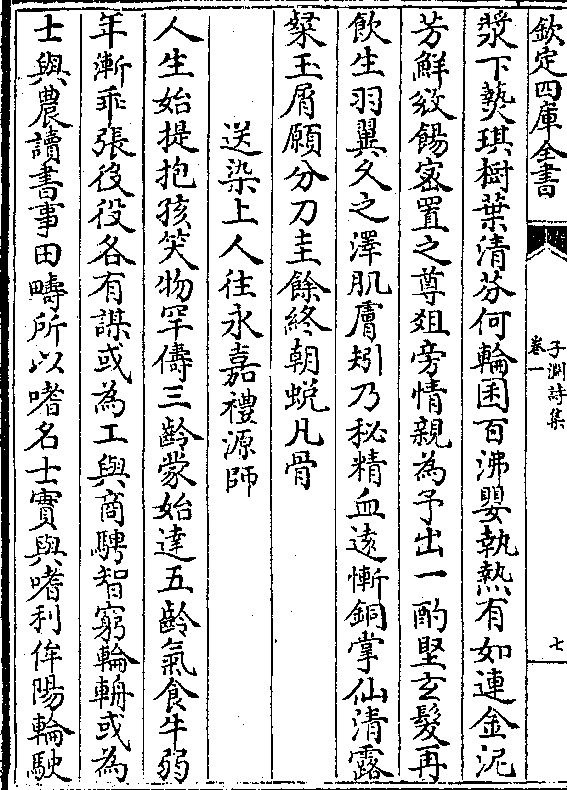 欽定四庫全書
子淵詩集
卷一
七
漿下爇琪樹葉清芬何輪囷百沸嬰執熱有如連金泥
芳鮮紋餳密置之尊俎旁情親為予出一酌堅玄髮再
飲生羽翼久之澤肌膚矧乃秘精血遠慚銅掌仙清露
粲玉屑願分刀圭餘終朝蛻凡骨
送染上人往永嘉禮源師
人生始提抱孩笑物罕儔三齡蒙始達五齡氣食牛弱
年漸乖張役役各有謀或為工與商騁智窮輪輈或為
士與農讀書事田疇所以嗜名士實與嗜利侔陽輪駛